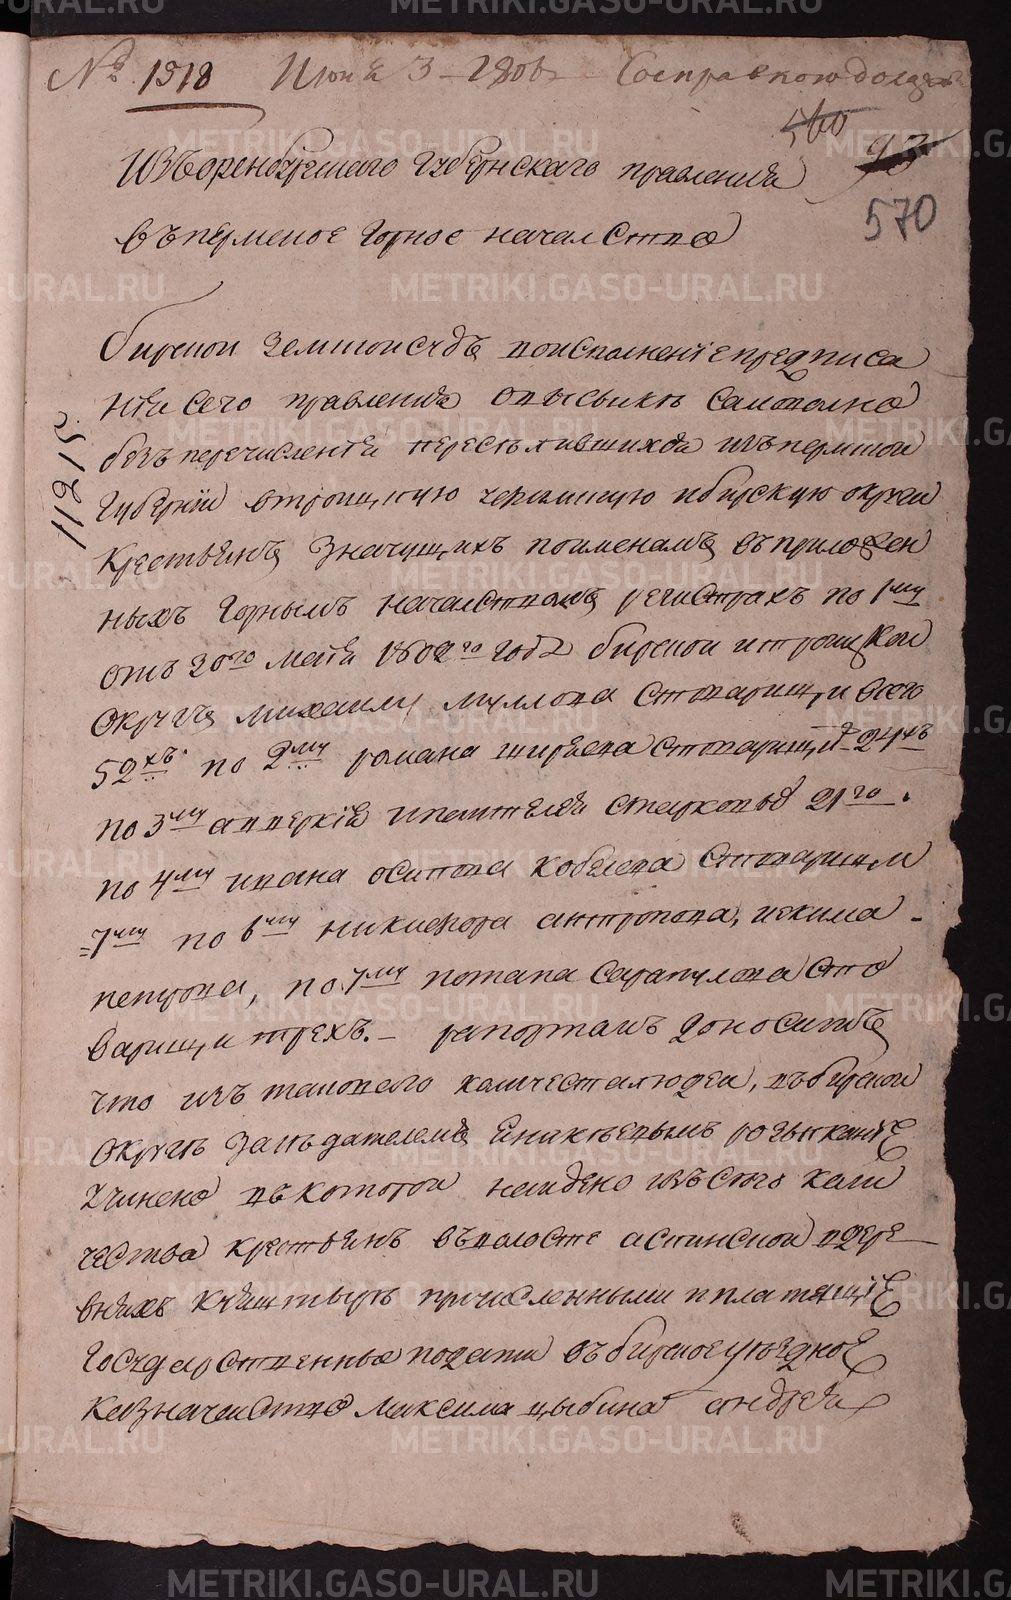 № 1518 Июня 3 1806 Со справкою долож
560
93
570
Изъ оренбургскаго губернскаго правления
въ пермское горное начальство
Бирской земской судъ во исполнение предписа
ния сего правления о высылкѣ самовольно
безъ перечисления переселившихся изъ пермской
губернии в троицкую челябинскую и бирскую округи
крестьянъ значущихъ поименамъ въ приложен
ныхъ горнымъ началствомъ регистрахъ по 1му
отъ 20го мая 1802го года бирской и троицкой
округъ михаилы муллова стоварищи всего
52хъ. по 2му романа ширяева стоварищи 24хъ
по 3му аверкия ипатиева старкова 21го.
по 4му ивана осипова кобелева стоварищи
7му по 6му никифора антропова, иекима
петрова, по 7му потапа сарапулова сто
варищи трехъ. – рапортамъ доноситъ
что изъ таковаго количества людей, въ бирской
округѣ засѣдателемъ Еникѣевымъ розыскание
учинено въ которой найдено изъ сего коли
чества крестьянъ въ волосте аспинской вдере
внѣхъ причисленными и платящие
государственные подати въ бирское уѣздное
казначейство максима цыбина андрея
11215